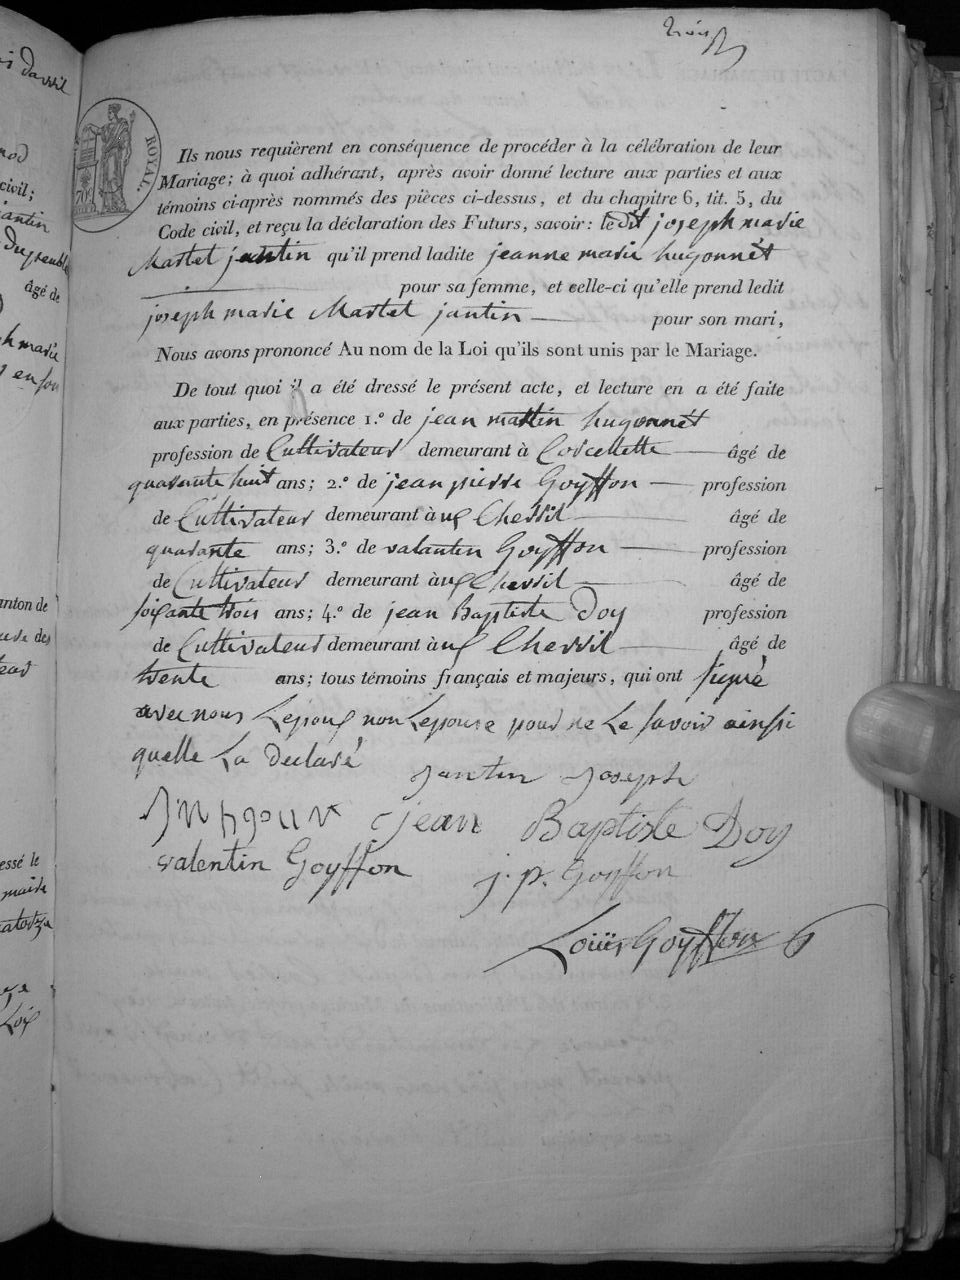 trois
ROYAL.
Ils nous requièrent en conséquence de procéder à la célébration de leur
Mariage; à quoi adhérant, après avoir donné lecture aux parties et aux
témoins ci-après nommés des pièces ci-dessus, et du chapitre 6, tit. 5, du
Code civil, et reçu la déclaration des Futurs, savoir: ledit joseph marie
Martel jantin qu'il prend ladite jeanne marie hugonnét
pour sa femme, et celle-ci qu'elle prend ledit
joseph marie Martel jantin pour son mari,
Nous avons prononcé Au nom de la Loi qu'ils sont unis par le Mariage.
De tout quoi il a été dressé le présent acte, et lecture en a été faite
aux parties, en présence 1.º de jean martin hugonnét
profession de Cultivateur demeurant à Corcellette âgé de
quarante huit ans; 2.º de jean pierre Goyffon profession
de Cultivateur demeurant à Chessil âgé de
quarante ans; 3.º de valantin Goyffon profession
de Cultivateur demeurant à Chessil âgé de
soixante trois ans; 4.º de jean Baptiste Doy profession
de Cultivateur demeurant à Chessil âgé de
trente ans; tous témoins français et majeurs, qui ont signé
avec nous Lepoux non Lepouse pour ne Le savoir ainsi
quelle La Declaré
jantin joseph
jean Baptiste Doy
valentin Goyffon j. p. Goyffon
Loüis Goyffon